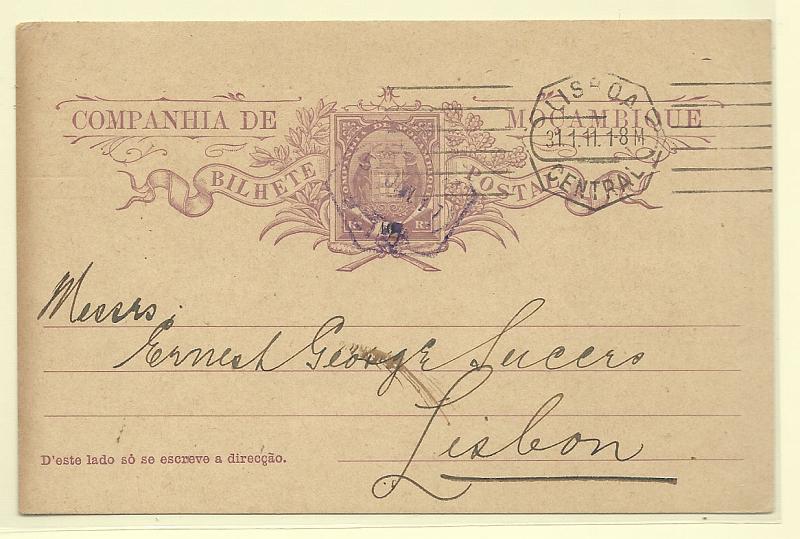 COMPANHIA DE MOÇAMBIQUE
BILHETE POSTAL
LISBOA
31.1.11. 1-8 M
CENTRAL
Messrs.
Ernest George Sucers
Lisbon
D'este lado só se escreve a direcção.